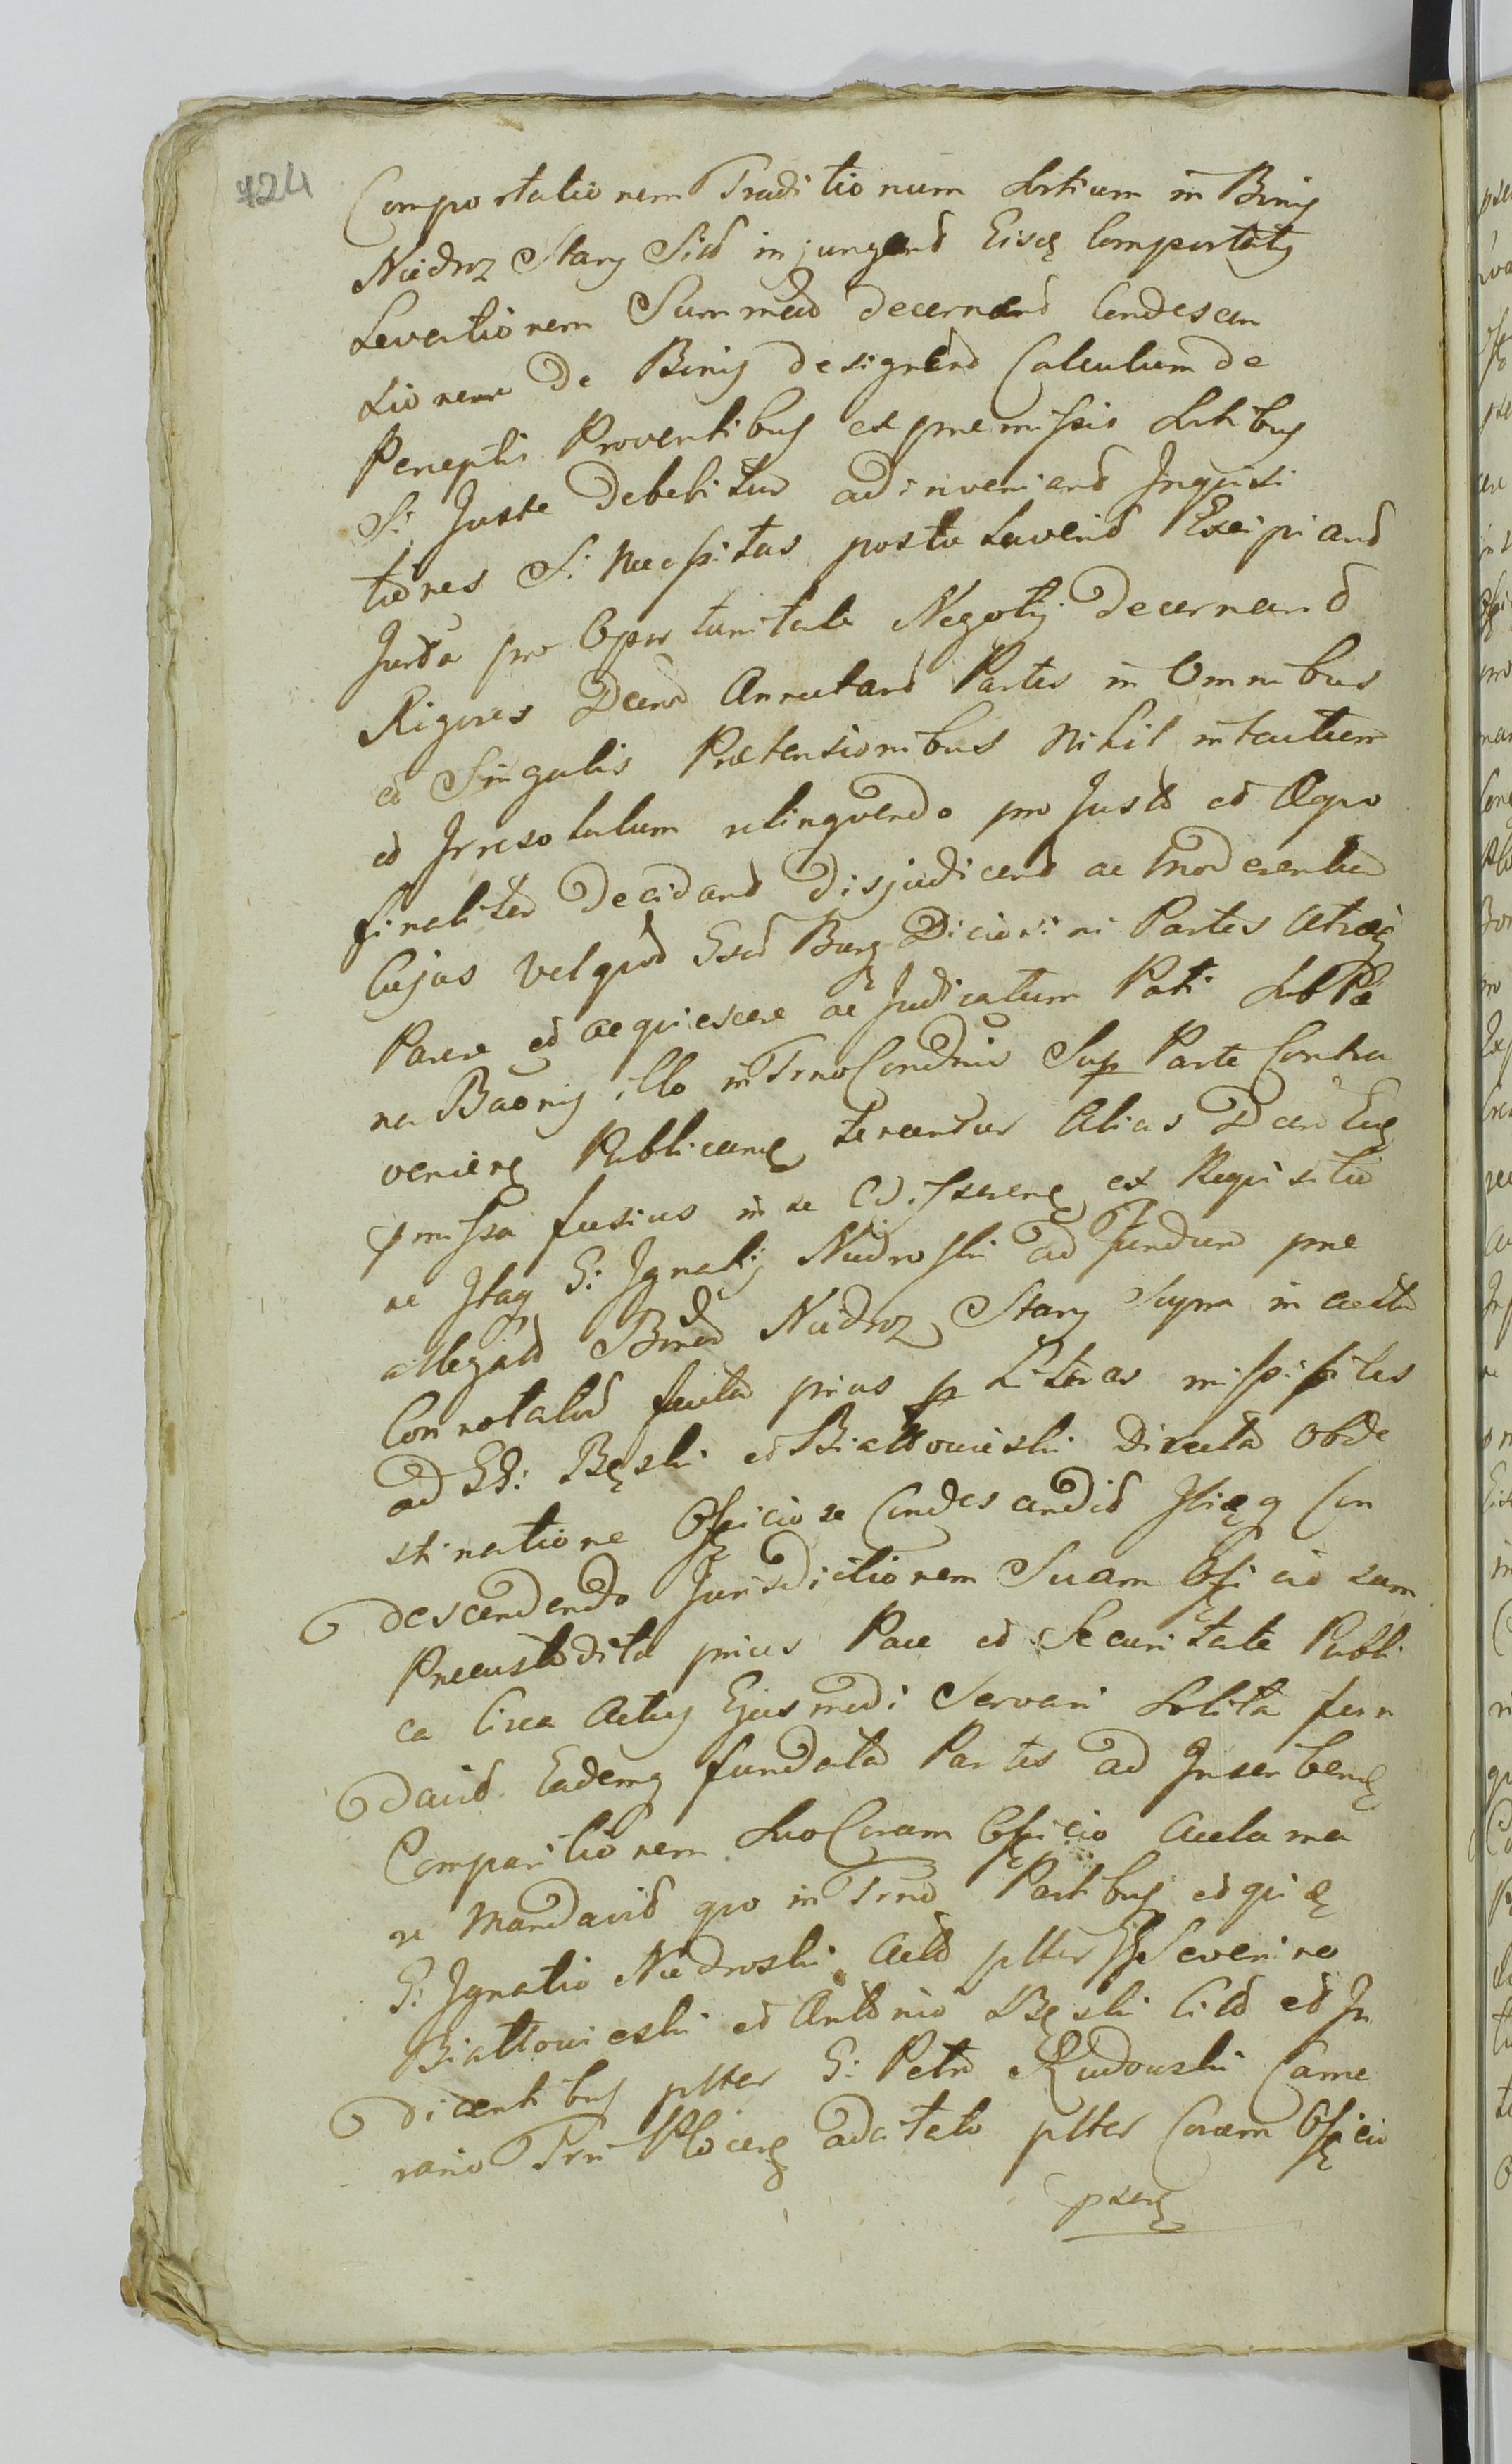 424
Comportationem Traditionum Sortium in Bonis
Niedroz Stary Sict injungend Eisq Comportatis
Levationem Summar decernend Condescen
sionem de Bonis designand Calculum de
Perceptis Proventibus ex premissis Sortibus
Si Juste Debebitur adinveniend Inquisi
tiones Si Necessitas postulaverit Excipiand
Jurta pro Oportunitate Negotij Decernend
Rigores Decret Annuland Partes in Omnibus
et Singulis Prætensionibus Nihil intactum
et Irresolutum relinquendo pro Justo et Æquo
finaliter Decidend Disjudicand ac Moderentur
Cujus Vel quod Esset Burg Dicioni ni Partes Utræq
Parere et acquiescere ac Judicatum Pati Sub Pæ
na Baonis illo in Trno Condnis Sup Parte Contra
venien Publicand teneantur Alias Decret Eiq
pmissa fusius in se Edisseren ex Requisitio
ne Itaq G: Ignatij Niedroski ad fundum pre
allegat Bonor Niedroz Stary Supra in actu
Connotatd facta prius p Literas missititas
ad GG: Bęski et Białłowieski Directa Obde
stinatione Officiose Condescendit Ibiq Con
descendendo Jurisdictionem Suam Officiosam
Precustodita prius Pace et Securitate Publi
ca Circa Actus Ejusmodi Servari Solita fun
davit Eademq fundata Partes ad Inscribend
Comparitionem Suo Coram Officio Acclama
re Mandavit quo in Trno Partibus et quid
G: Ignatio Niedroski Acto pltter GG Severino
Białłowieski et Antonio Bęski Citt et In
dicentibus pltter G: Petro Rudowski Came
rario Trri Plocen adcitato pltter Coram Officio
psen